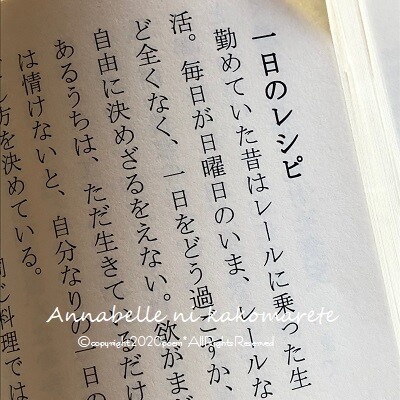 一日のレシピ
勤めていた昔はレールに乗った生
活。毎日が日曜日のいま、レールな
ど全くなく、一日をどう過ごすか、
自由に決めざるをえない。欲がまだ
あるうちは、ただ生きているだけ
は情けないと、自分なりの一日の
方を決めている。
同じ料理では
Annabelle ni kakomarete
©copyright2020poem* All Rights Reserved